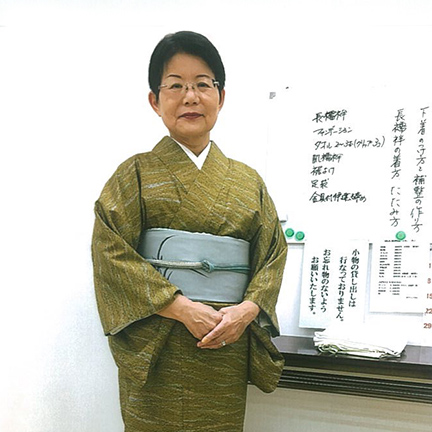 下着のつけ方と補整の作り方
長襦袢の着方 たたみ方
長襦袢
ファンデーション
タオル2〜3本
肌襦袢
裾よけ
足袋
金具付伊達締め
小物の貸し出しは
行なっておりません。
お忘れ物のないよう
お願いいたします。
1
8
15
22
29